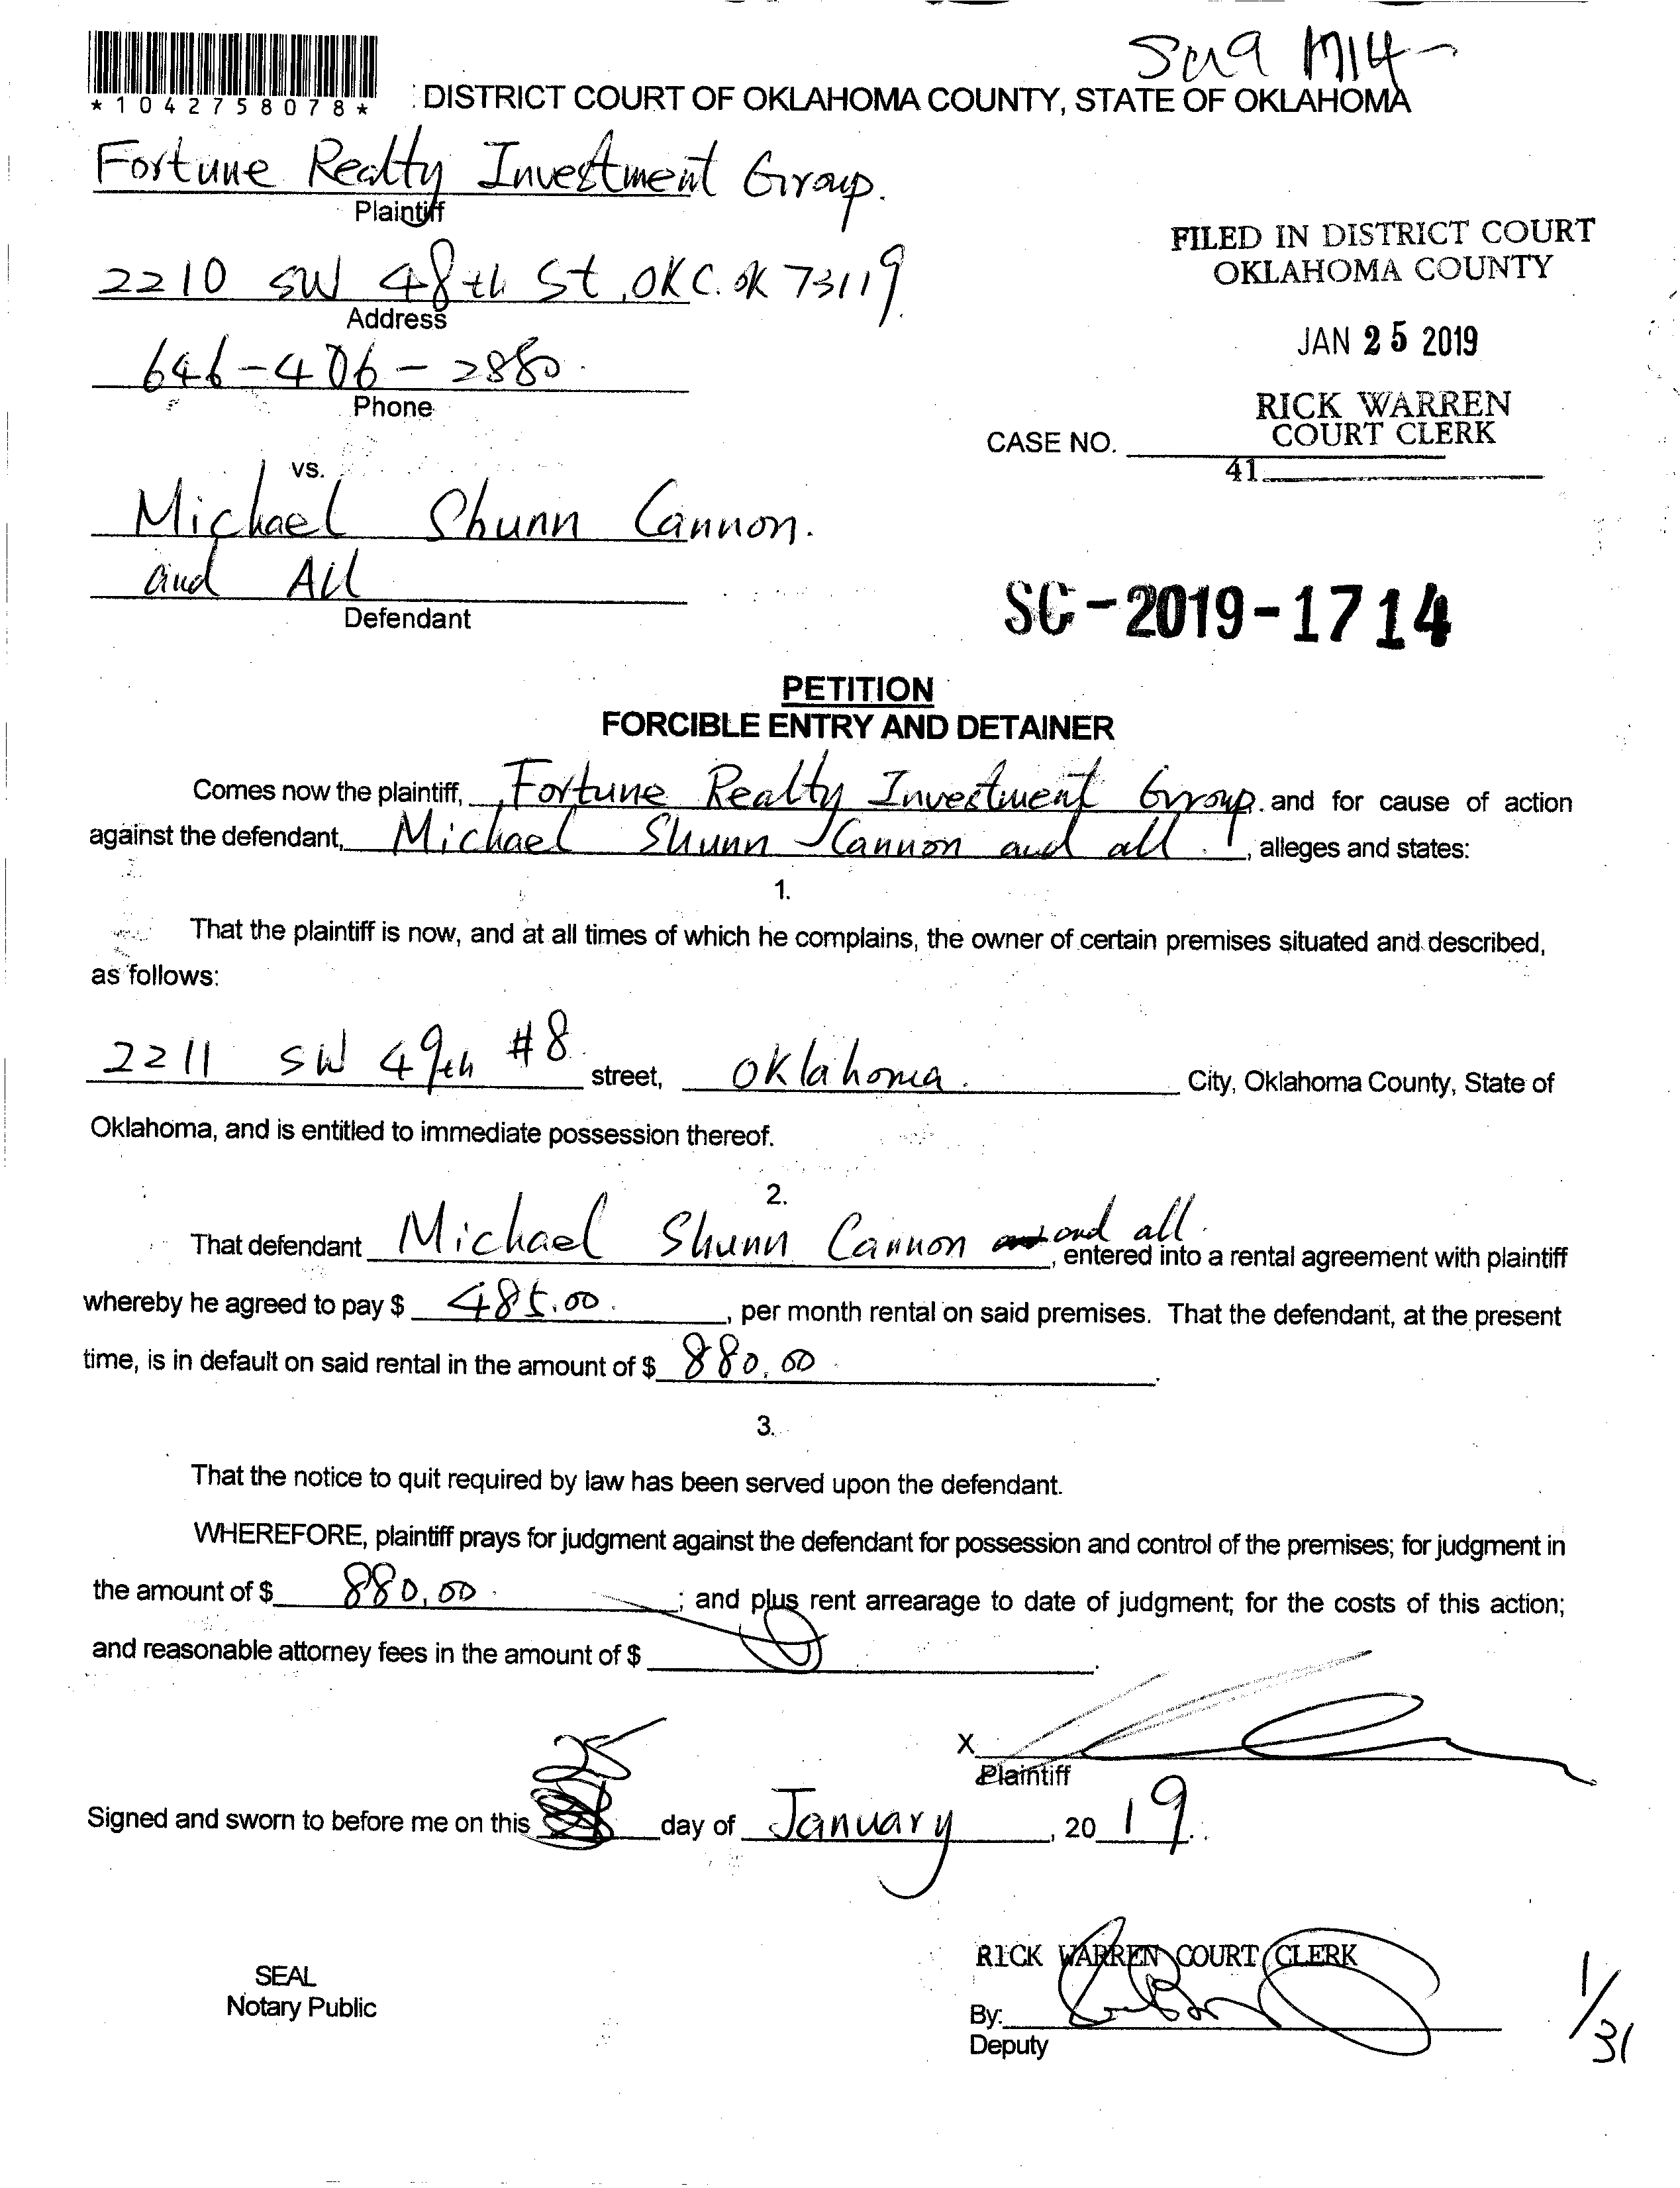 *1042758078*
DISTRICT COURT OF OKLAHOMA COUNTY, STATE OF OKLAHOMA
Fortune Realty Investment Group.
Plaintiff
2210 SW 48th St, OKC. OK 73119.
Address
646-406-2880.
Phone
FILED IN DISTRICT COURT
OKLAHOMA COUNTY
JAN 25 2019
RICK WARREN
COURT CLERK
CASE NO.
41
vs.
Michael Shunn Cannon.
and All
Defendant
SC-2019-1714
PETITION
FORCIBLE ENTRY AND DETAINER
Comes now the plaintiff, Fortune Realty Investment Group. and for cause of action
against the defendant, Michael Shunn Cannon and all., alleges and states:
1.
That the plaintiff is now, and at all times of which he complains, the owner of certain premises situated and described,
as follows:
2211 SW 49th #8 street, Oklahoma. City, Oklahoma County, State of
Oklahoma, and is entitled to immediate possession thereof.
2.
That defendant Michael Shunn Cannon and all., entered into a rental agreement with plaintiff
whereby he agreed to pay $ 485.00., per month rental on said premises. That the defendant, at the present
time, is in default on said rental in the amount of $ 880.00.
3.
That the notice to quit required by law has been served upon the defendant.
WHEREFORE, plaintiff prays for judgment against the defendant for possession and control of the premises; for judgment in
the amount of $ 880.00.; and plus rent arrearage to date of judgment; for the costs of this action;
and reasonable attorney fees in the amount of $
X
Plaintiff
Signed and sworn to before me on this 25 day of January, 20 19.
SEAL
Notary Public
RICK WARREN COURT CLERK
By:
Deputy
1/31